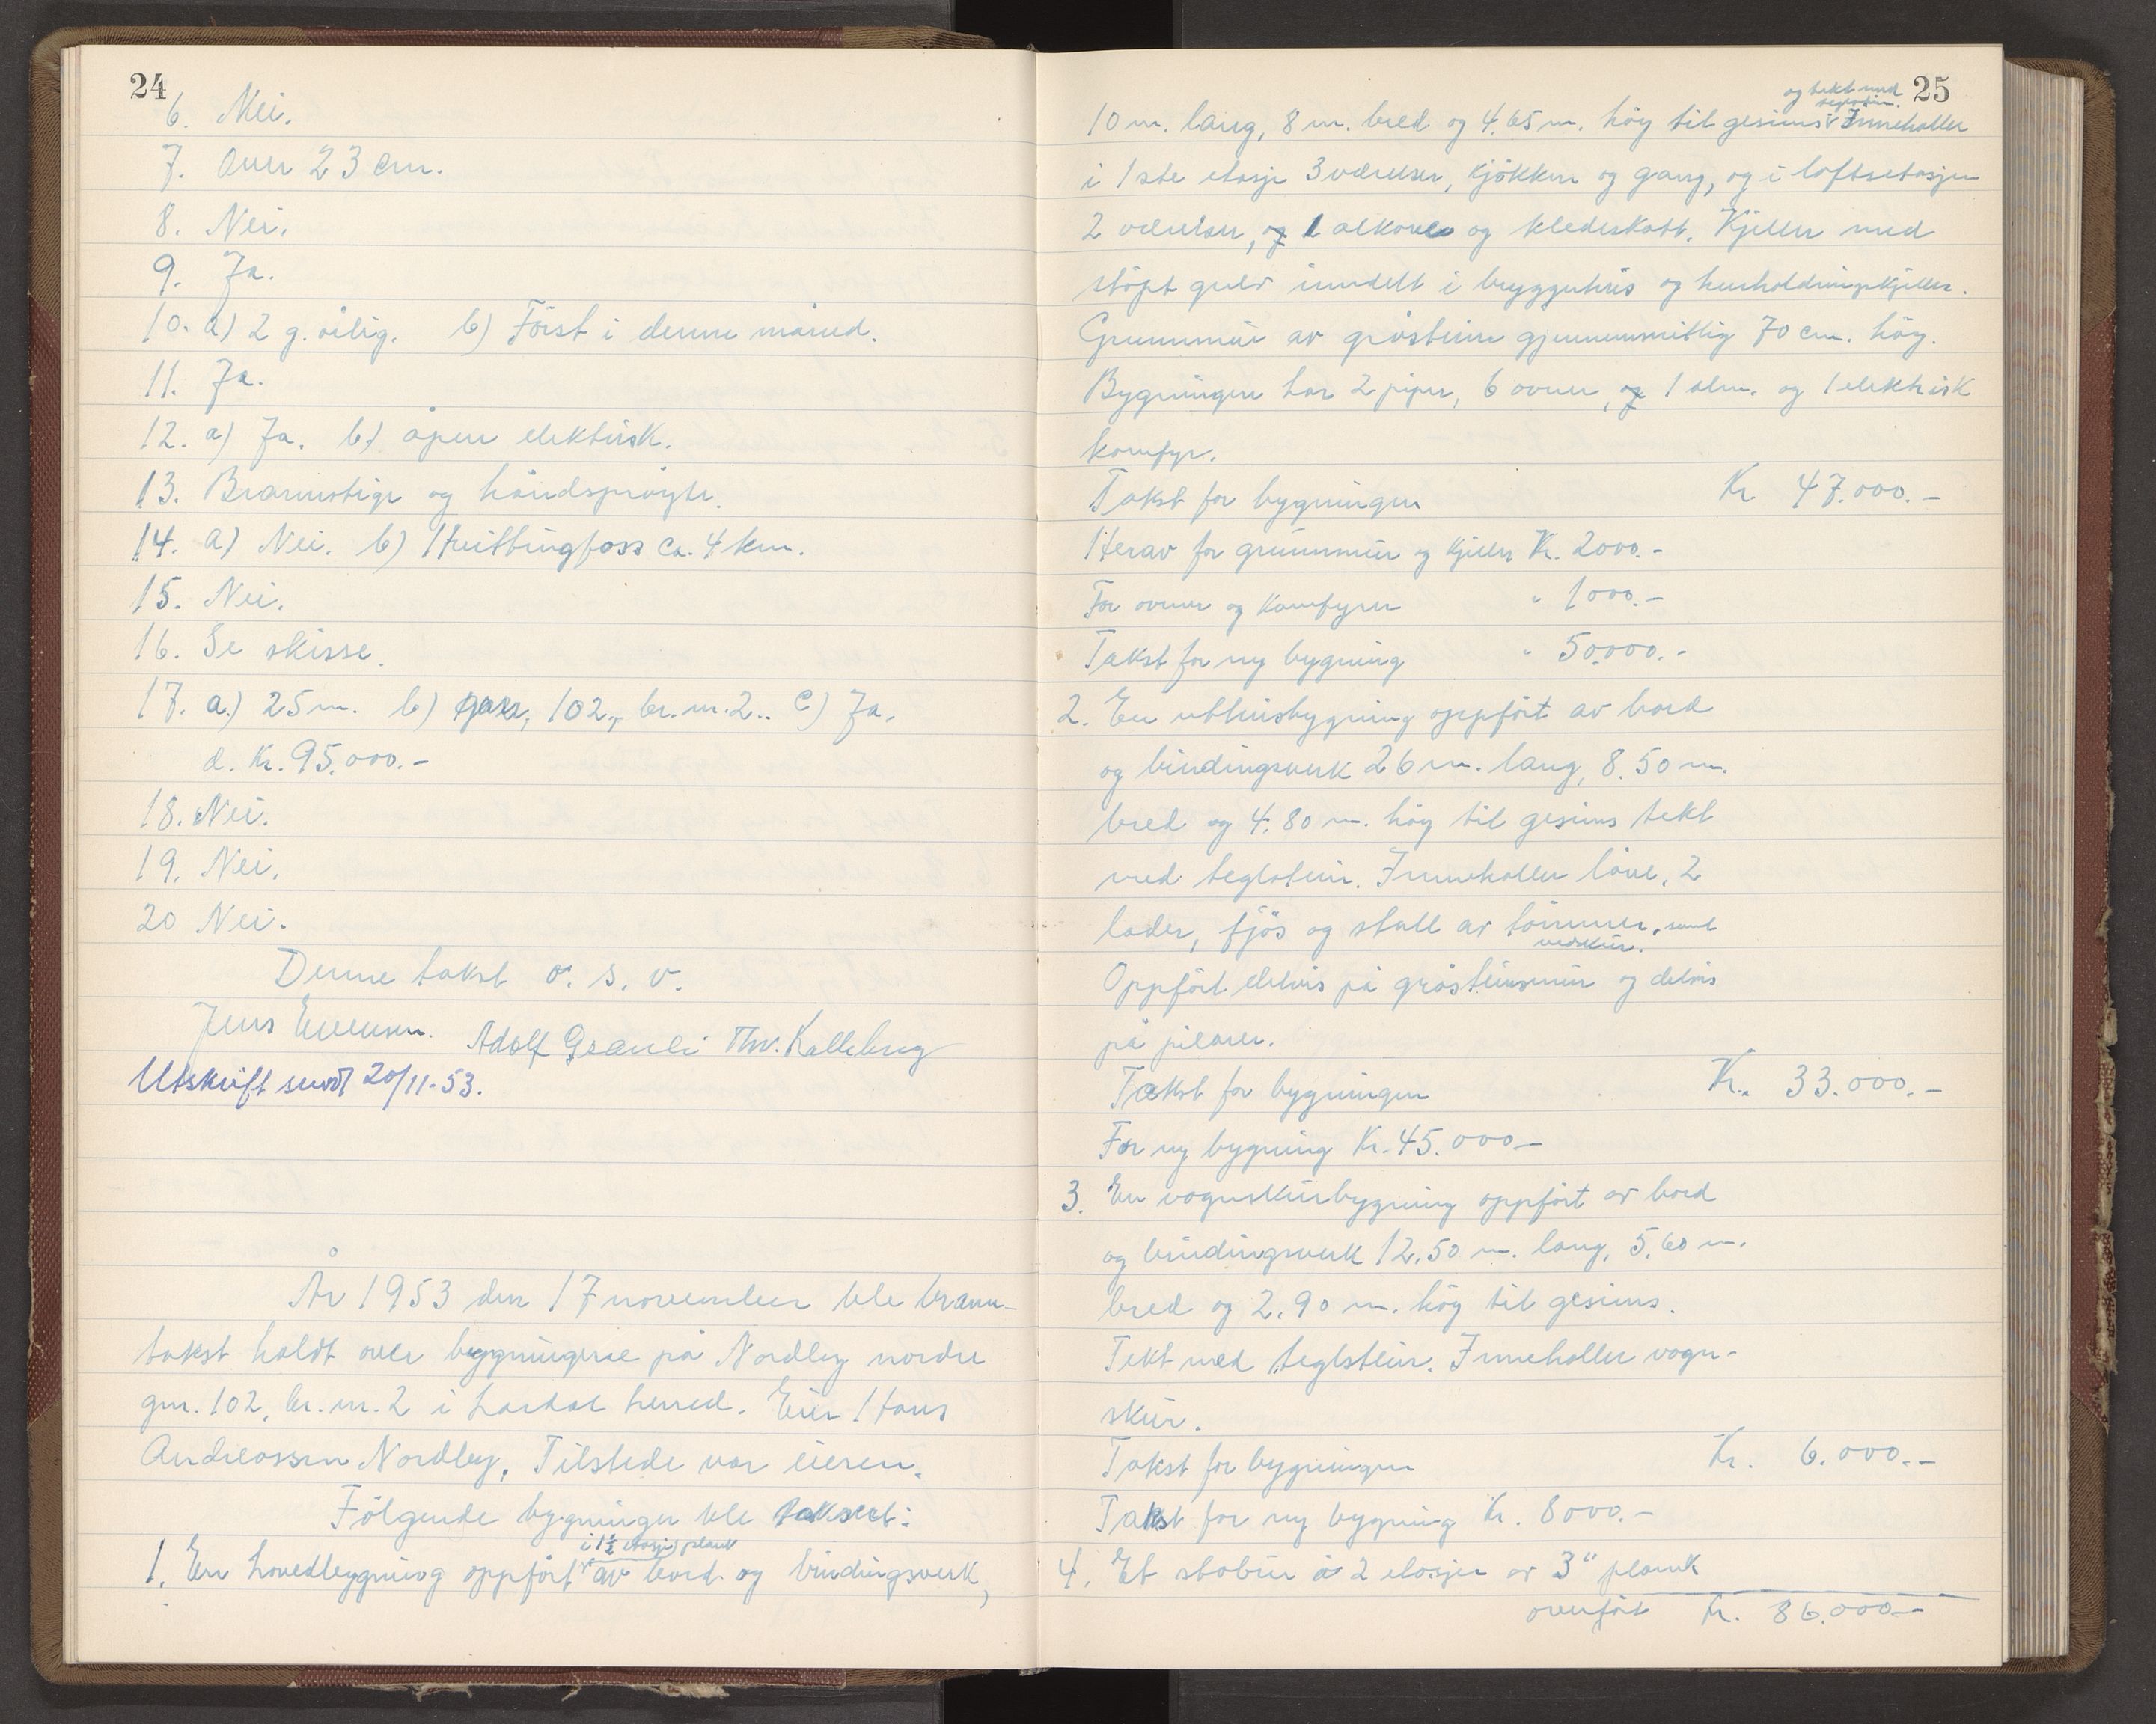 24
6. Nei.
7. Over 23 cm.
8. Nei.
9. Ja.
10. a) 2 g. årlig. b) Först i denne måned.
11. Ja.
12. a) Ja. b) åpen elektrisk.
13. Brannstige og håndspröyte.
14. a) Nei. b) Hvittingfoss ca. 4 km.
15. Nei.
16. Se skisse.
17. a.) 25 m. b) 102, br.nr.2.. c) Ja.
d. Kr. 95.000.-
18. Nei.
19. Nei.
20 Nei.
Denne takst o. s. v.
Jens Evensen. Adolf Granli Thv. Kalleberg
Utskrift sendt 20/11-53.
År 1953 den 17 november ble brann-
takst holdt over bygningene på Nordby nordre
gnr. 102, br.nr. 2 i Lardal herred. Eier Hans
Andreassen Nordby. Tilstede var eieren.
Fölgende bygninger ble taksert:
i 1½ etasje plank
1. En hovedbygning oppfört av bord og bindingsverk,
25
og tekt med
teglstein.
10 m. lang, 8 m. bred og 4,65 m. höy til gesims Inneholler
i 1ste etasje 3 værelser, kjökken og gang, og i loftsetasjen
2 værelser, og 1 alkove og kledeskott. Kjeller med
stöpt gulv inndelt i bryggerhus og husholdningskjeller.
Grunnmur av gråstein gjennemsnittlig 70 cm. höy.
Bygningen har 2 piper, 6 ovner, og 1 alm. og 1 elektrisk
komfyr.
Takst for bygningen Kr. 47.000.-
Herav for grunnmur og kjeller Kr. 2000.-
For ovner og komfyrer " 1000.-
Takst for ny bygning " 50.000.-
2. En uthusbygning oppfört av bord
og bindingsverk 26 m. lang, 8.50 m.
bred og 4.80 m. höy til gesims tekt
med teglstein. Inneholler låve, 2
lader, fjös og stall av tömmer, samt
vedskur.
Oppfört delvis på gråsteinsmur og delvis
på pilarer.
Takst for bygningen Kr. 33.000.-
For ny bygning Kr. 45.000-
3. En vognskurbygning oppfört av bord
og bindingsverk 12,50 m. lang, 5,60 m.
bred og 2,90 m. höy til gesims.
Tekt med teglstein. Inneholler vogn-
skur.
Takst for bygningen Kr. 6.000.-
Takst for ny bygning Kr. 8000.-
4. Et stabur i 2 etasjer av 3" plank
overfört Kr. 86.000-